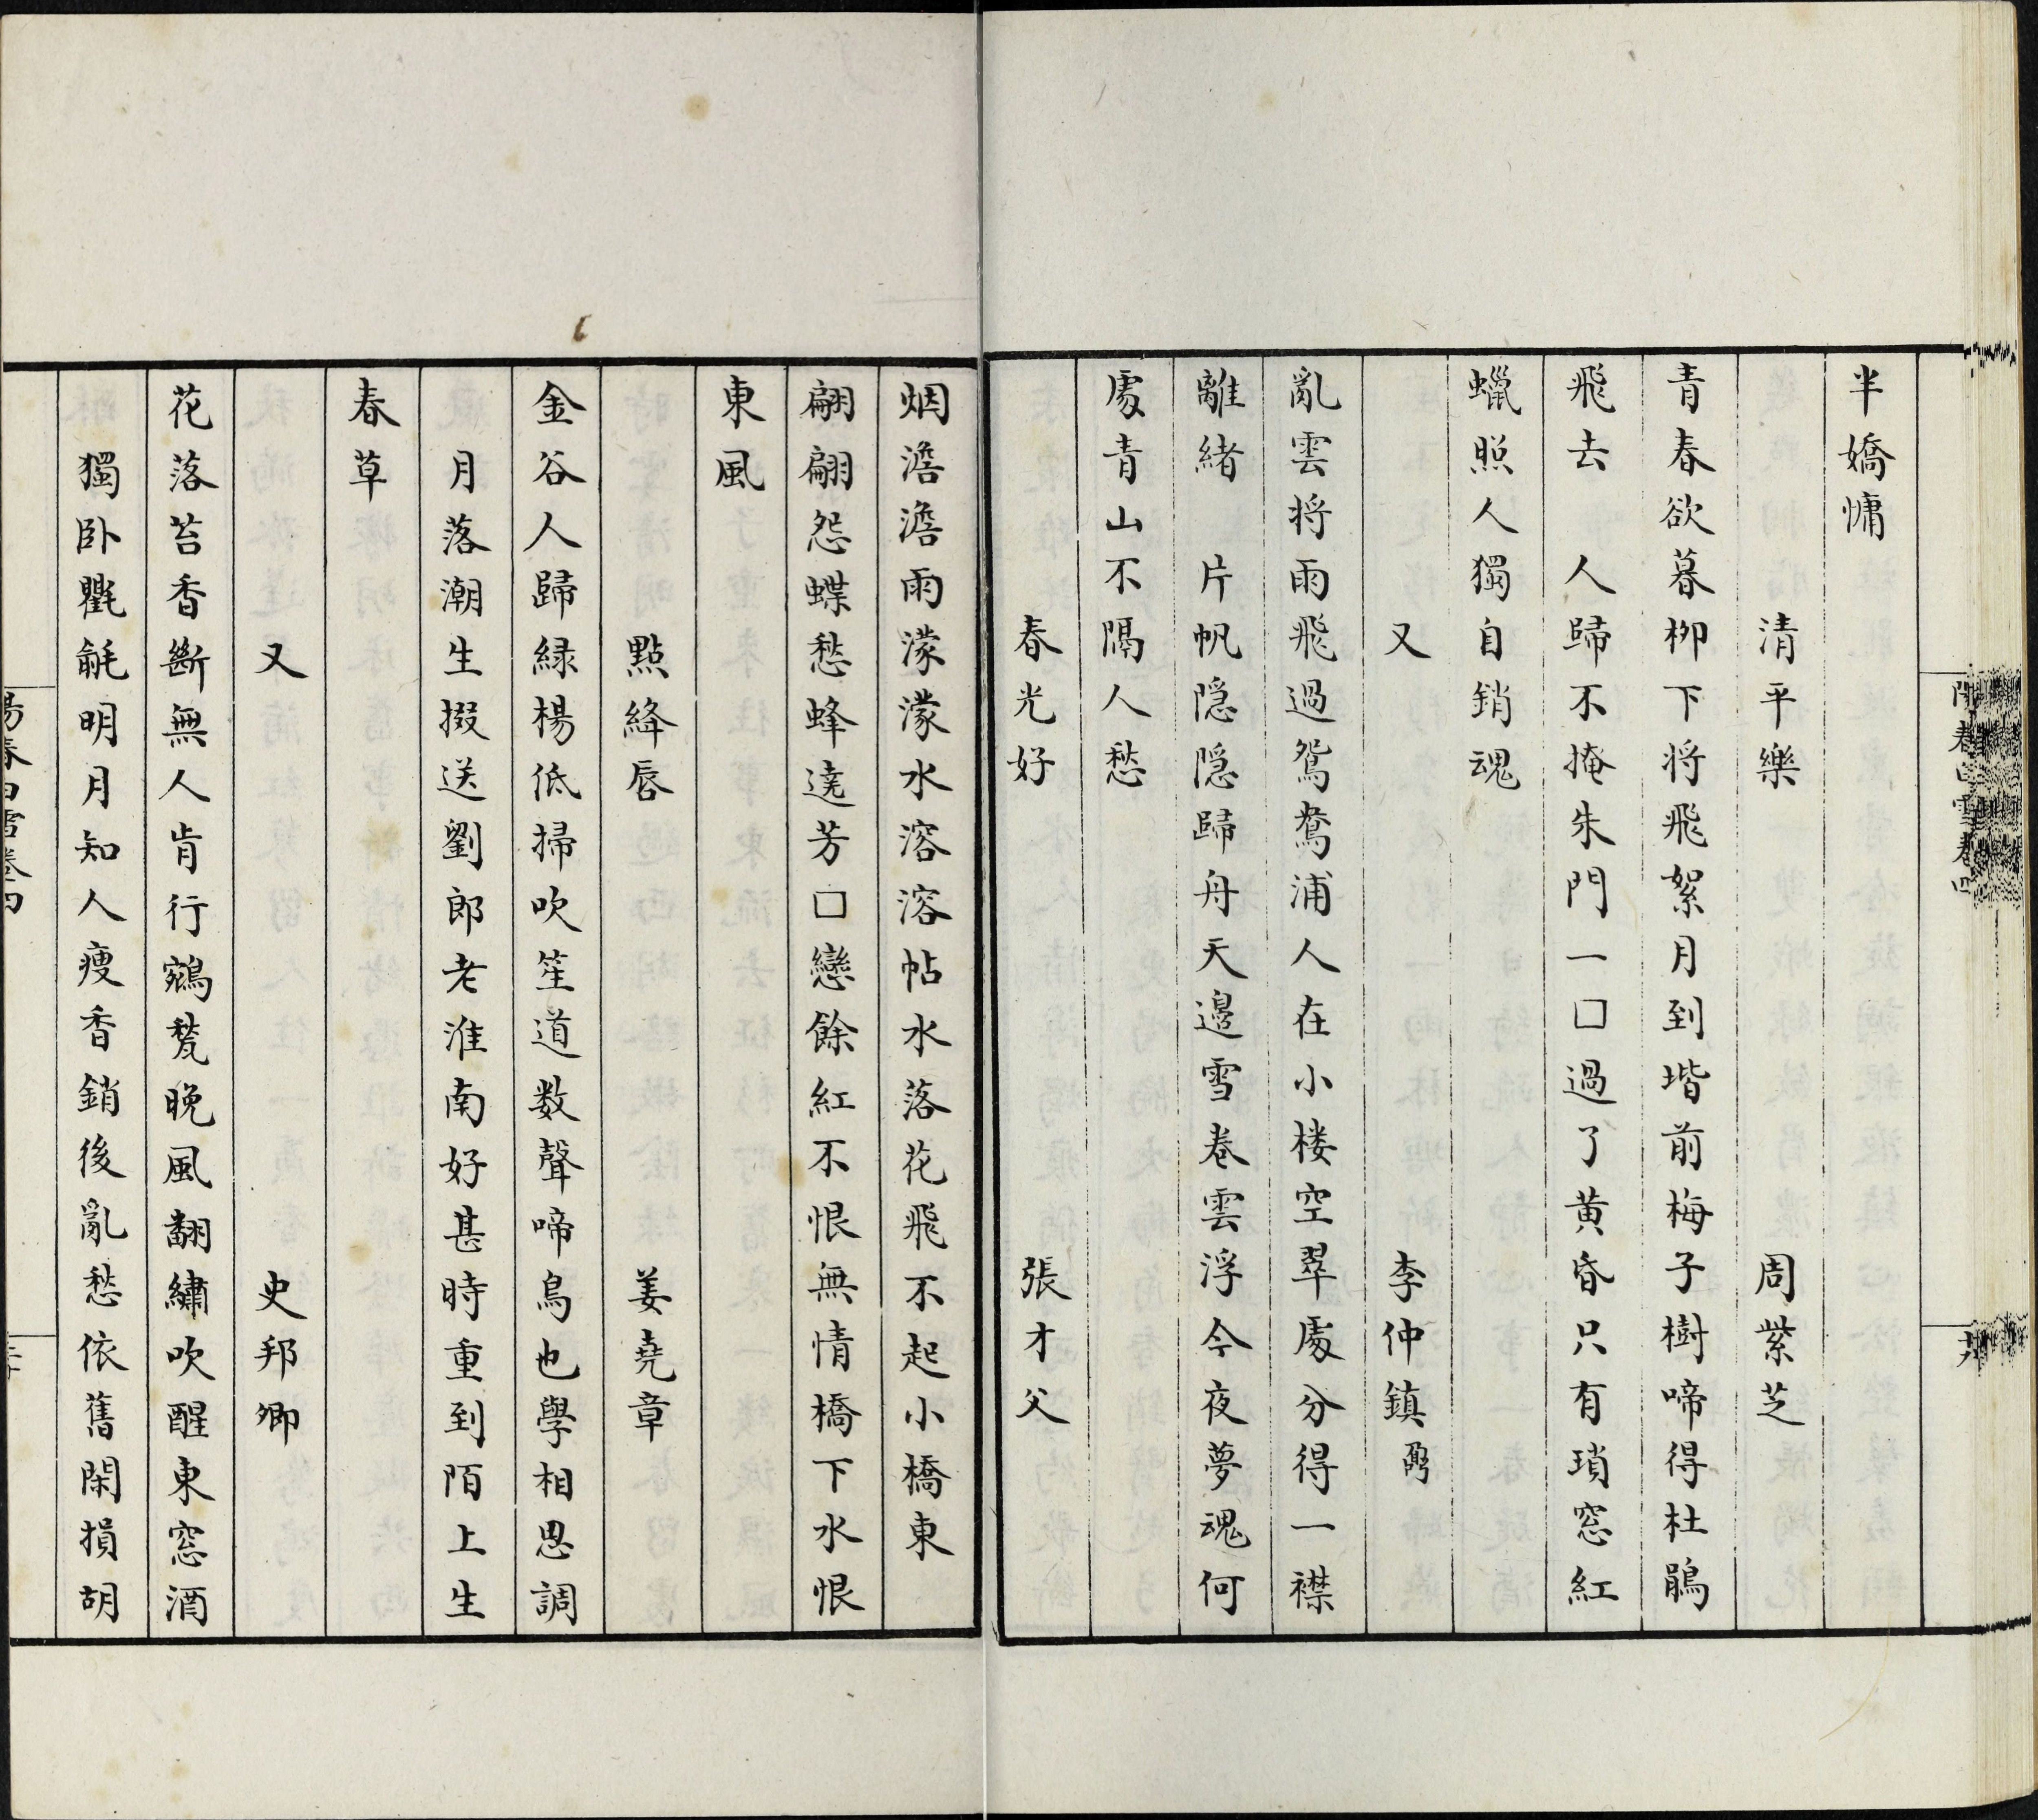 半嬌慵
清平樂 周紫芝
青春欲暮柳下将飛絮月到堦前梅子樹啼得杜鵑
飛去 人歸不掩朱門一囗過了黄昏只有瑣窓紅
蠟照人獨自銷魂
又 李仲鎮
亂雲将雨飛過鴛鴦浦人在小楼空翠處分得一襟
離緒 片帆隠隠歸舟天邉雪巻雲浮今夜夢魂何
處青山不隔人愁
春光好 張才父
烟澹澹雨濛濛水溶溶帖水落花飛不起小橋東
翩翩怨蝶愁蜂遶芳囗戀餘紅不恨無情橋下水恨
東風
點絳唇 姜堯章
金谷人歸緑楊低掃吹笙道数聲啼鳥也學相思調
月落潮生掇送劉郎老淮南好甚時重到陌上生
春草
又 史邦卿
花落苔香斷無人肯行鵷甃晚風翻繡吹醒東窓酒
獨卧氍毹明月知人痩香銷後亂愁依舊閑損胡
陽春白雪卷四